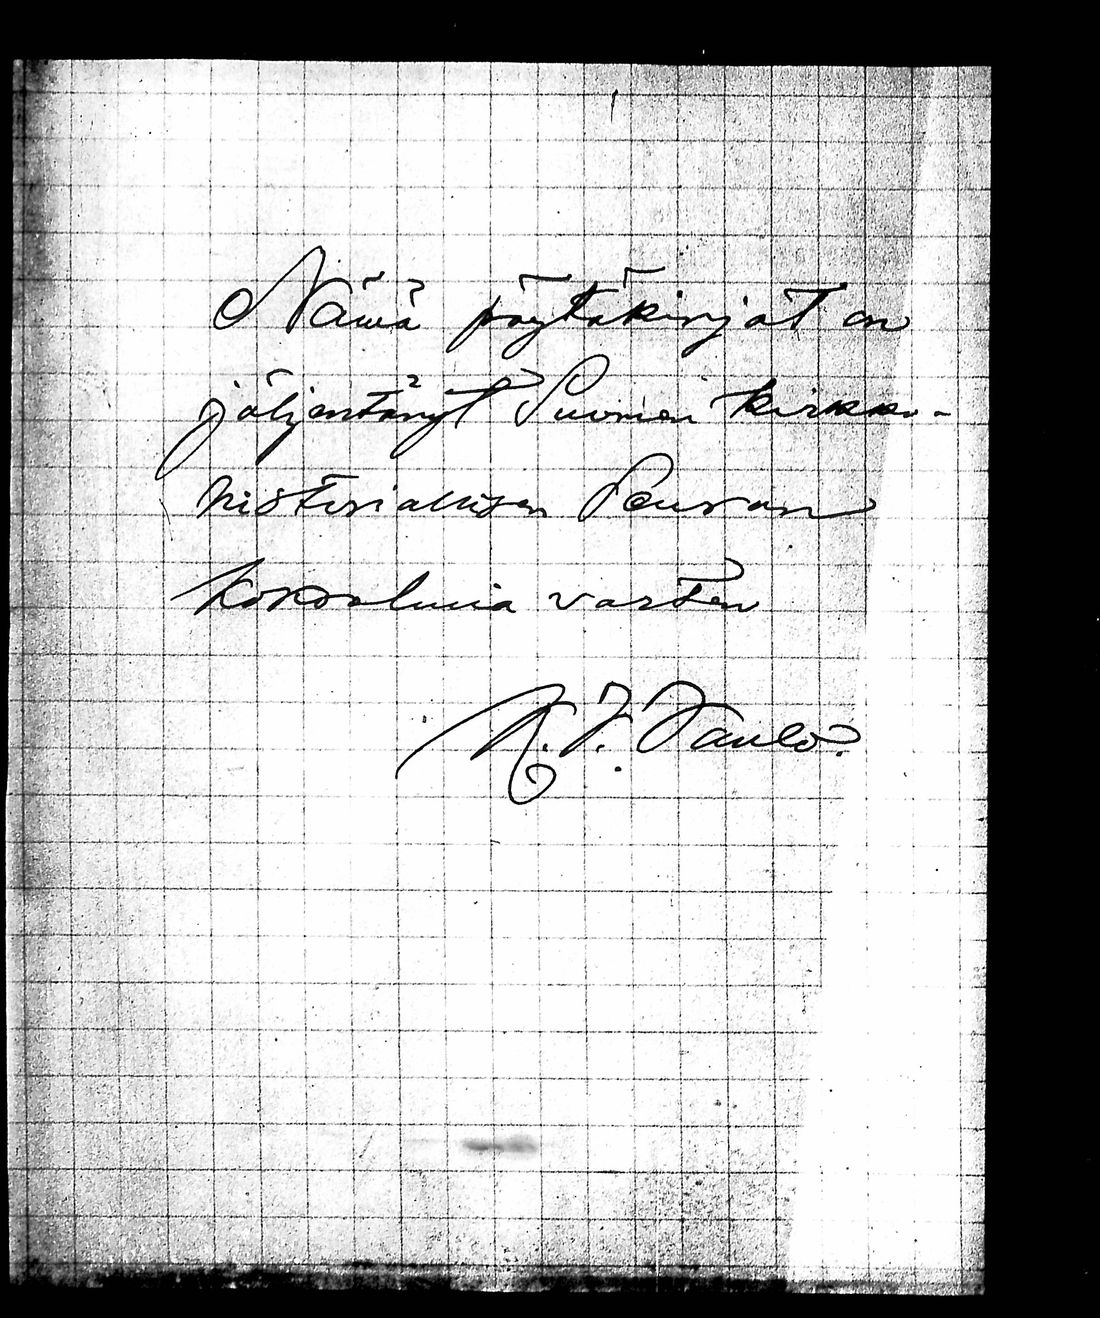 Nämä pöytäkirjat on
jäljentänyt Suomen kirkko-
historiallisen Seuran
kokoelmia varten
K. J. Paulo.